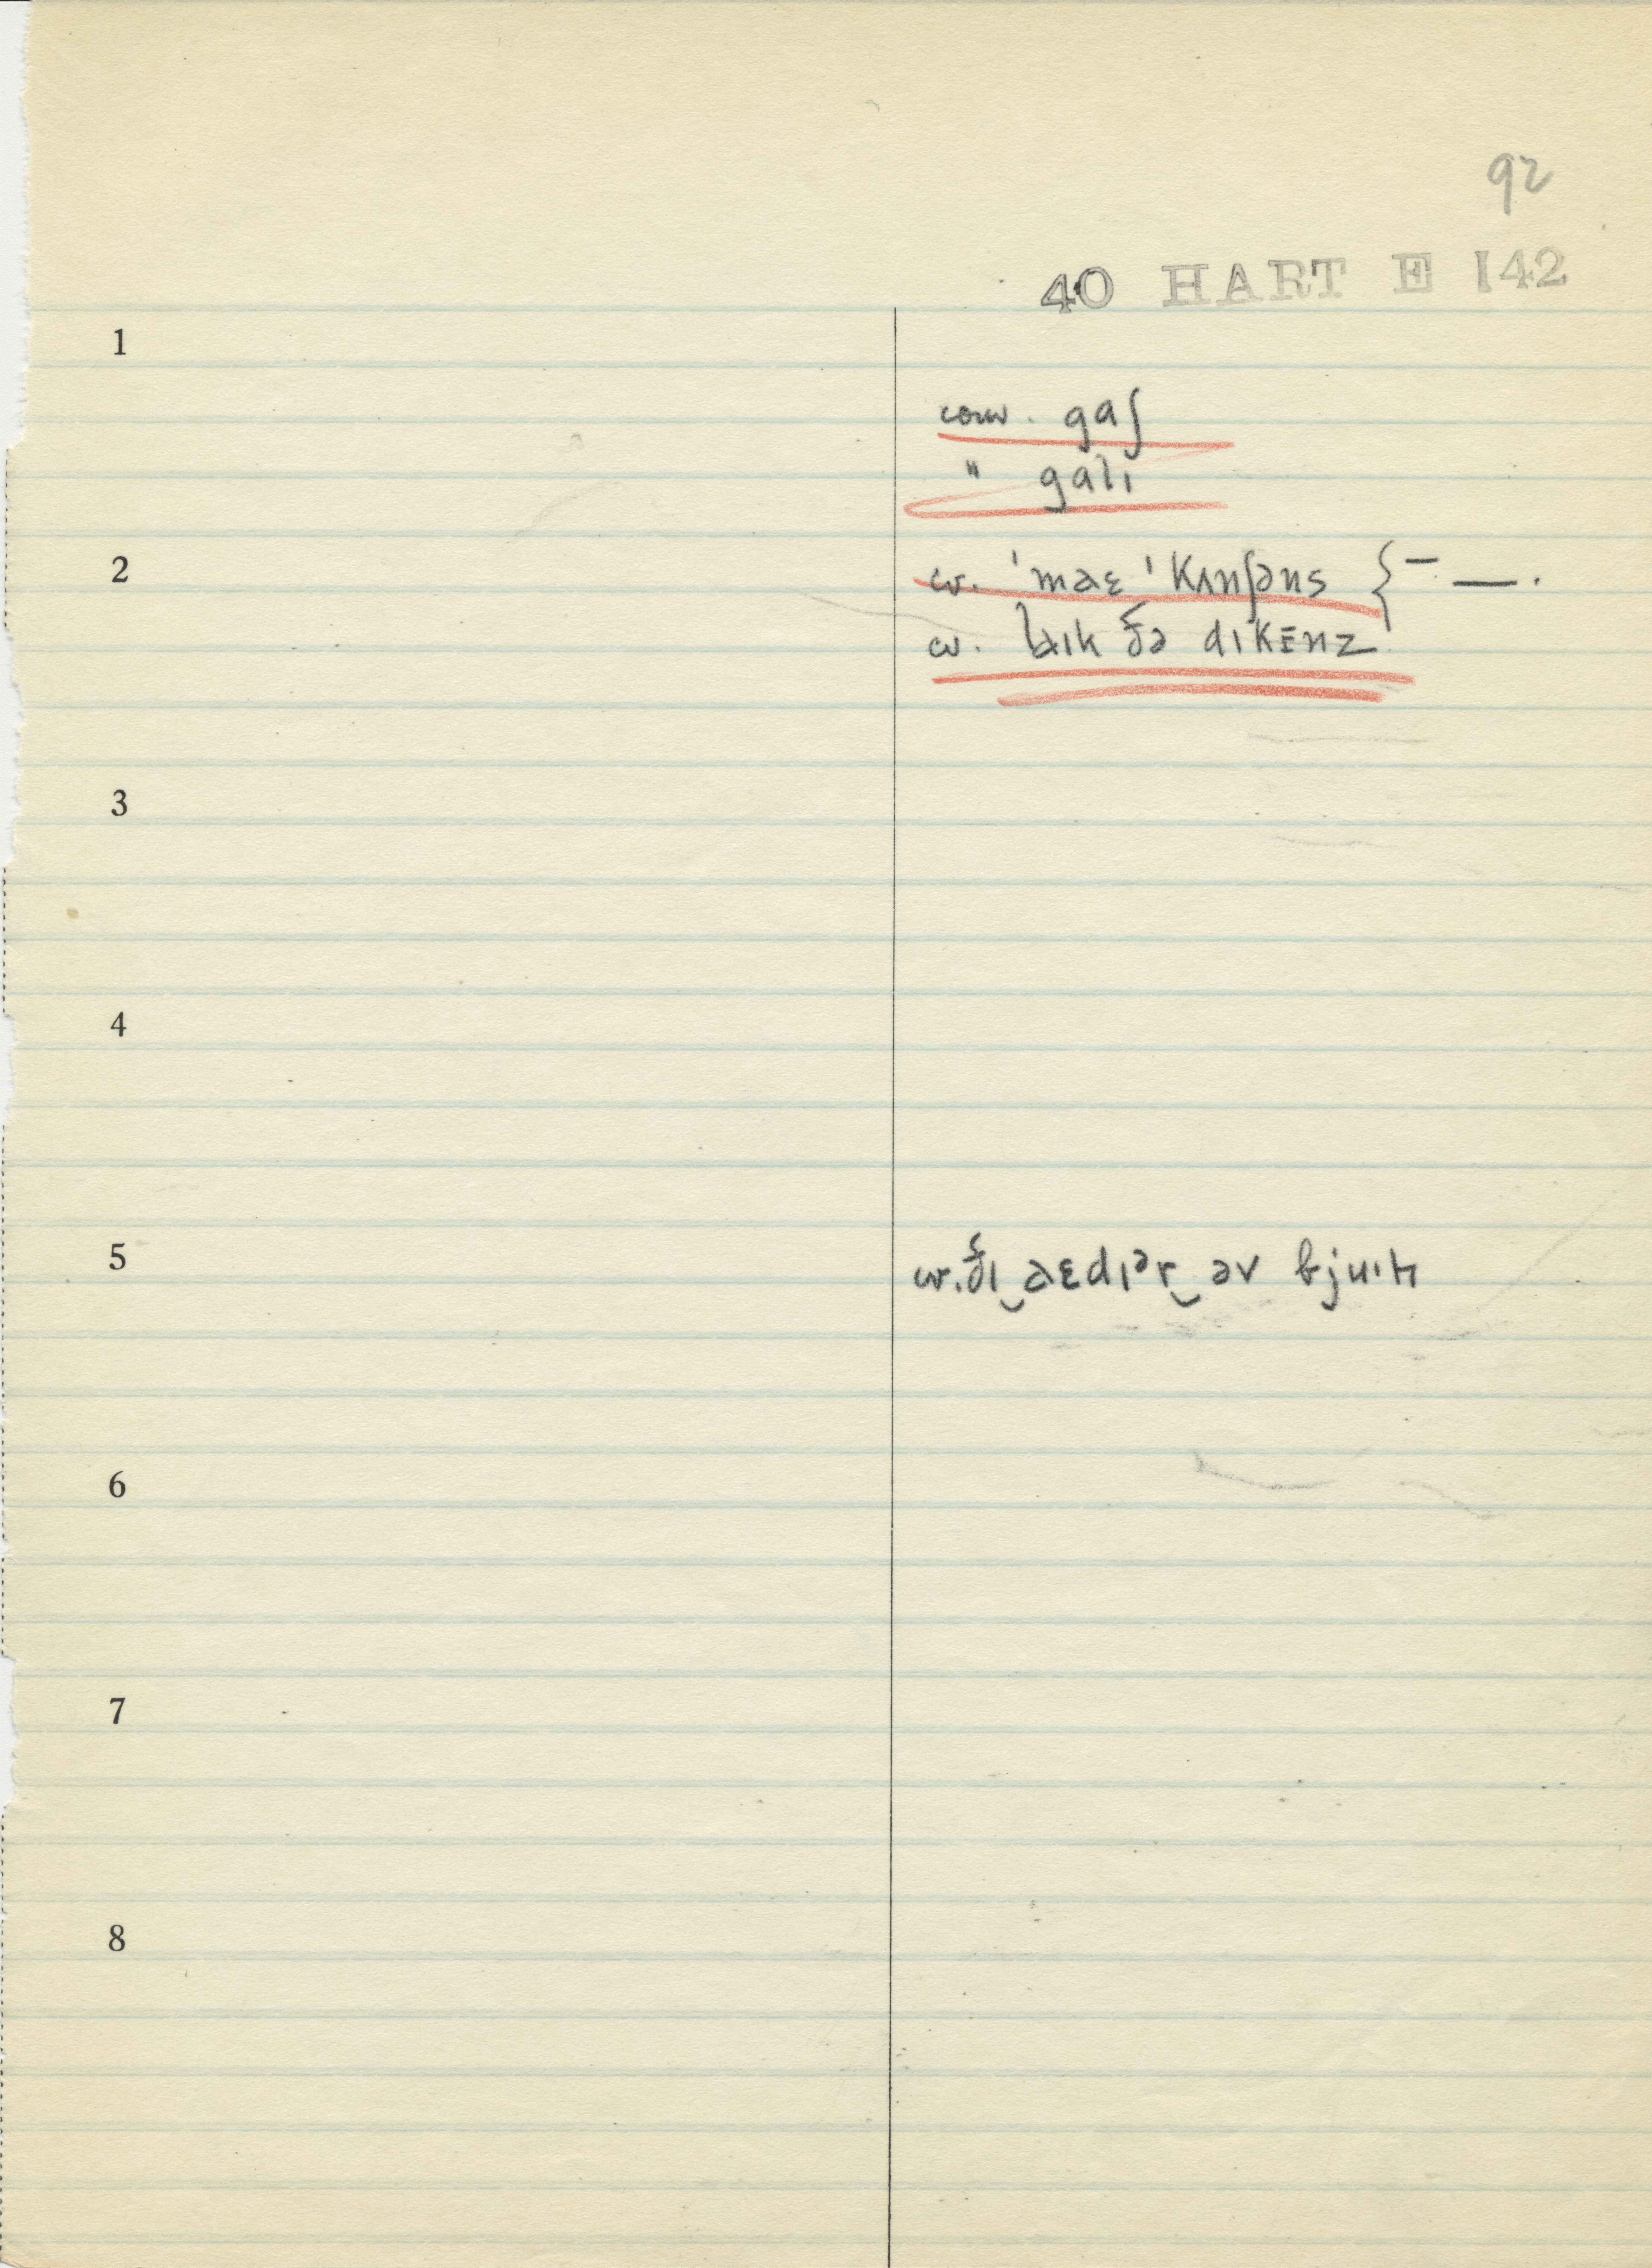 92
40 HART E 142
1
conv. gaʃ
" galɪ
2
cv. 'maɛ 'kʌnʃəns { – — .
cv. laɪk ðə dɪkɪnz
3
4
5
cv. ðɪ‿aɛdɪər‿əv
6
7
8